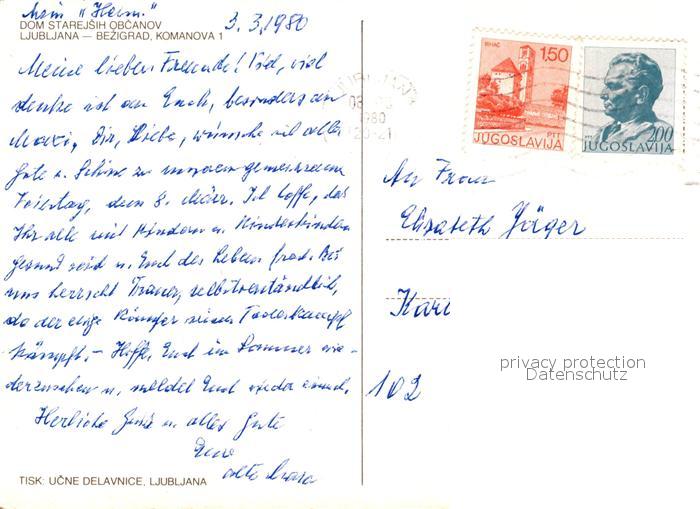 Mein "Heim"
3.3.1980
DOM STAREJŠIH OBČANOV
LJUBLJANA — BEŽIGRAD, KOMANOVA 1
Meine lieben Freunde! Viel, viel
denke ich an Euch, besonders an
Maxi. Dir, Liebe, wünsche ich alles
Gute u. Schöne zu unserem gemeinsamen
Feiertag, dem 8. März. Ich hoffe, daß
Ihr alle mit Kindern u. Kindeskindern
gesund seid u. Euch des Lebens freut. Bei
uns herrscht Trauer, selbstverständlich,
da der Kämpfer seinen Todeskampf
kämpft. – Hoffe, Euch im Sommer wie-
derzusehen u. meldet Euch wieder einmal.
Herzliche Grüße u. alles Gute
Eure
alte
TISK: UČNE DELAVNICE, LJUBLJANA
BIHAĆ
1,50
PTT
JUGOSLAVIJA
2,00
JUGOSLAVIJA
1980
20-21
An Frau
Elisabeth Jäger
Karl
102
privacy protection
Datenschutz